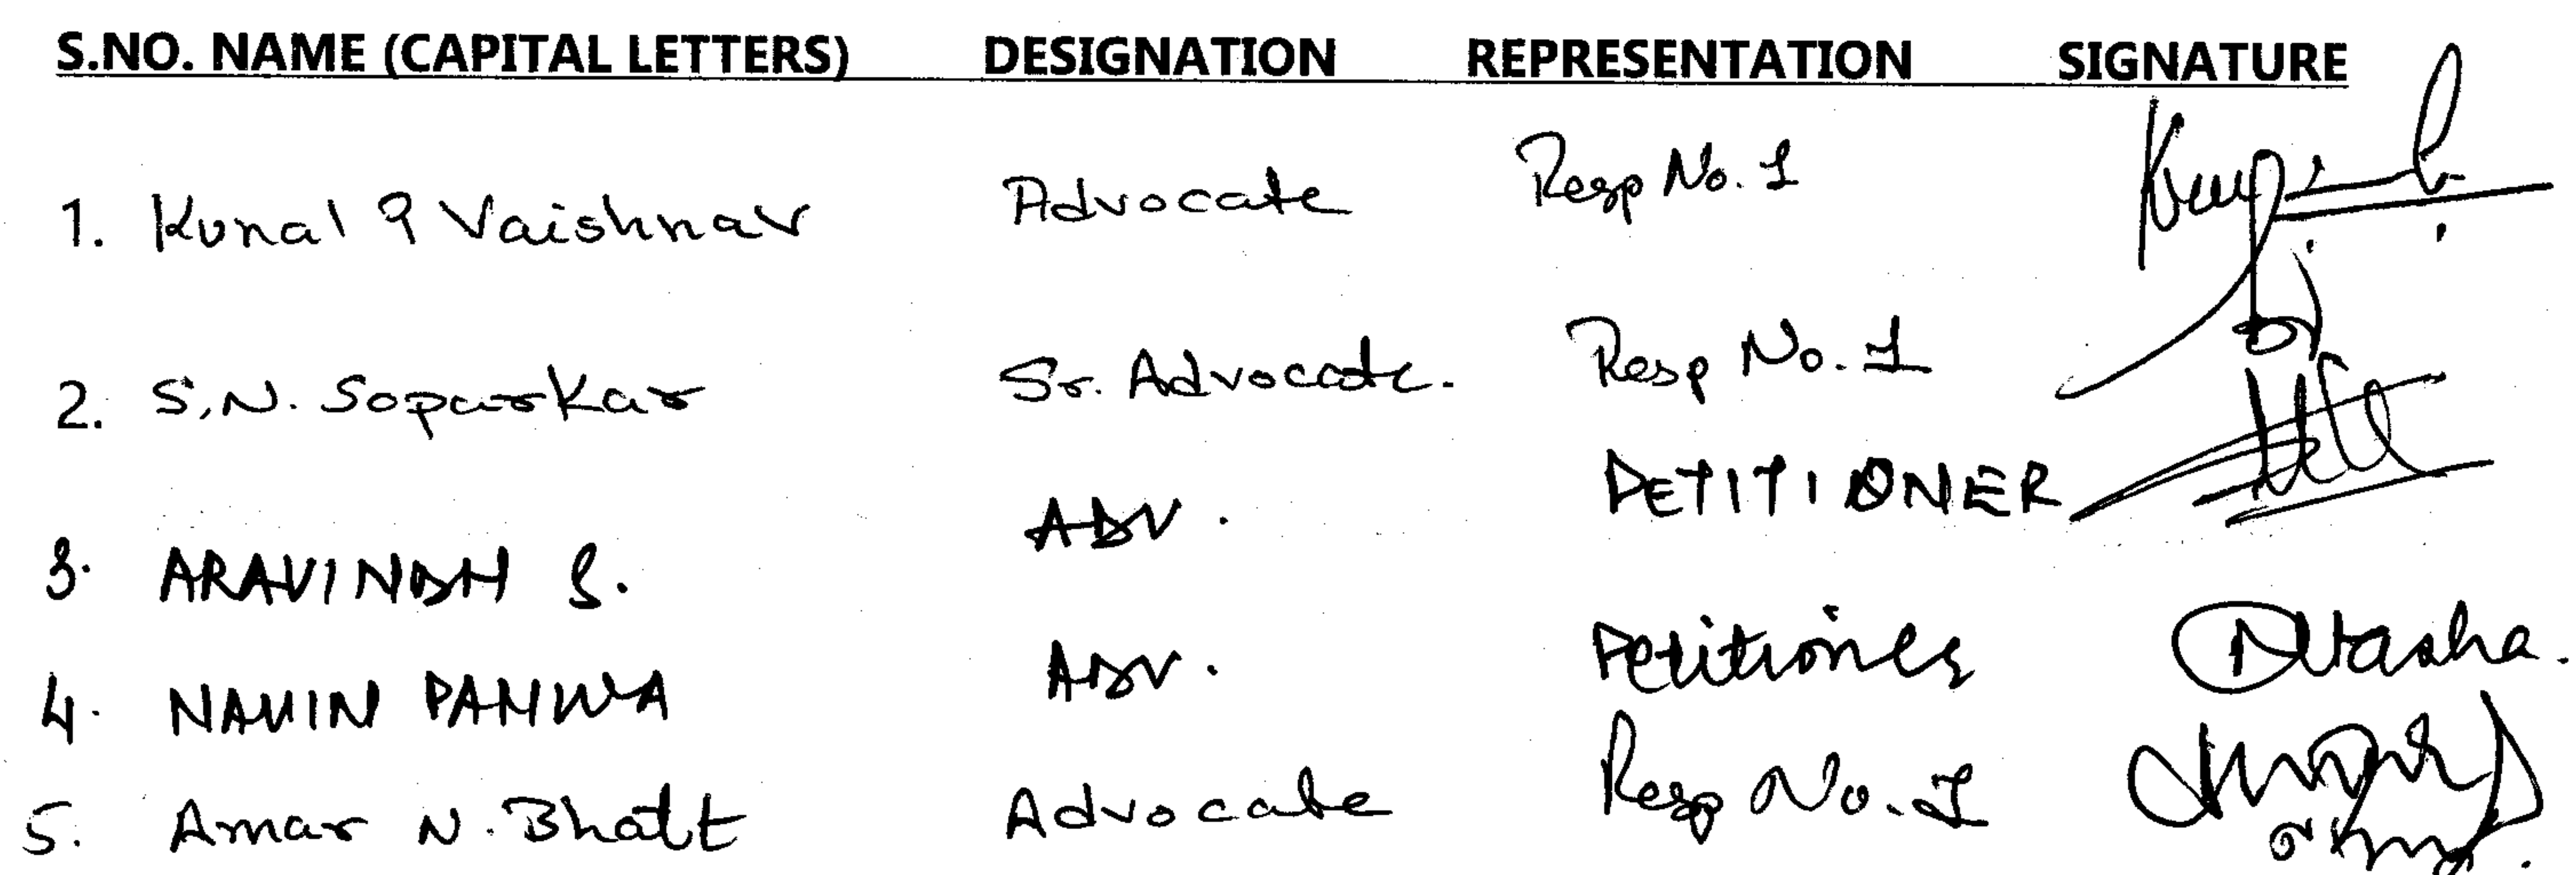 S.NO. NAME (CAPITAL LETTERS) DESIGNATION REPRESENTATION SIGNATURE
1. Kunal P Vaishnav Advocate Resp No. 1
2. S.N. Soparkar Sr. Advocate. Resp No. 1
3. ARAVINDH S. ADV. PETITIONER
4. NAVIN PAHWA ADV. Petitioner Natasha.
5. Amar N. Bhatt Advocate Resp No. 1